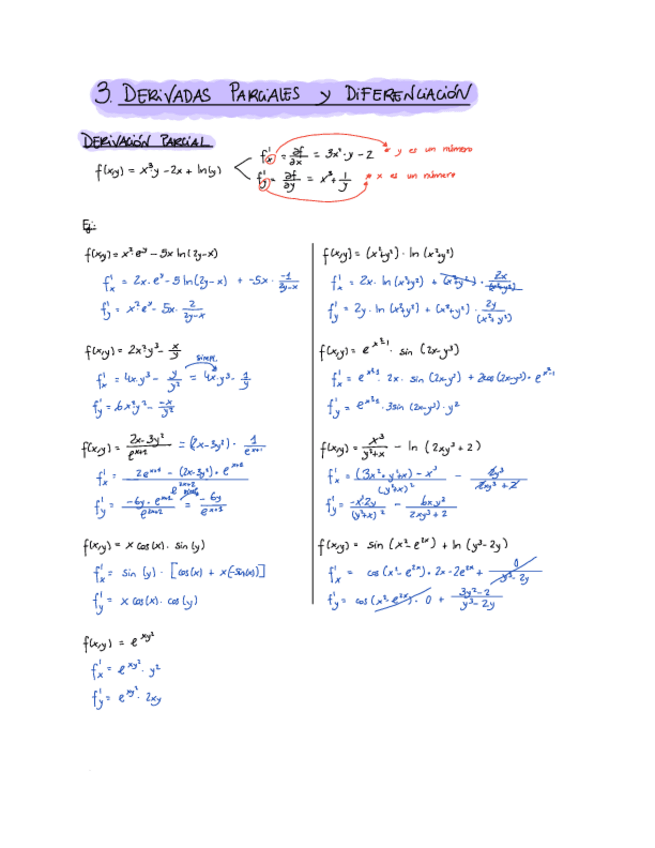 3. DERIVADAS PARCIALES Y DIFERENCIACIÓN
DERIVACIÓN PARCIAL
f(x,y) = x³·y - 2x + ln(y)
f'x = ∂f/∂x = 3x²·y - 2 y es un número
f'y = ∂f/∂y = x³ + 1/y x es un número
Ej:
f(x,y) = x²·e^y - 5x ln(2y-x)
f'x = 2x·e^y - 5 ln(2y-x) + -5x · -1/(2y-x)
f'y = x²·e^y - 5x · 2/(2y-x)
f(x,y) = 2x²y³ - x/y
f'x = 4x·y³ - y/y² = 4x·y³ - 1/y
f'y = 6x²y² - -x/y²
f(x,y) = (2x-3y²)/
f'x =
f'y =
f(x,y) = x cos(x) · sin(y)
f'x = sin(y) · [cos(x) + x(-sin(x))]
f'y = x cos(x) · cos(y)
f(x,y) = e^(xy²)
f'x = e^(xy²) · y²
f'y = e^(xy²) · 2xy
f(x,y) = (x²+y²) · ln(x²+y²)
f'x = 2x · ln(x²+y²) + (x²+y²) · 2x/(x²+y²)
f'y = 2y · ln(x²+y²) + (x²+y²) · 2y/(x²+y²)
f(x,y) = e^(x²-1) · sin(2x-y³)
f'x = e^(x²-1) · 2x · sin(2x-y³) + 2cos(2x-y³) · e^(x²-1)
f'y =
f(x,y) = x³/(y²+x) - ln(2xy³+2)
f'x =
f'y = -x³·2y/(y²+x)² - 6xy²/(2xy³+2)
f(x,y) = sin(x²-e^(2x)) + ln(y³-2y)
f'x = cos(x²-e^(2x)) · 2x-2e^(2x) + 0/(y³-2y)
f'y = cos(x²-e^(2x)) · 0 + (3y²-2)/(y³-2y)